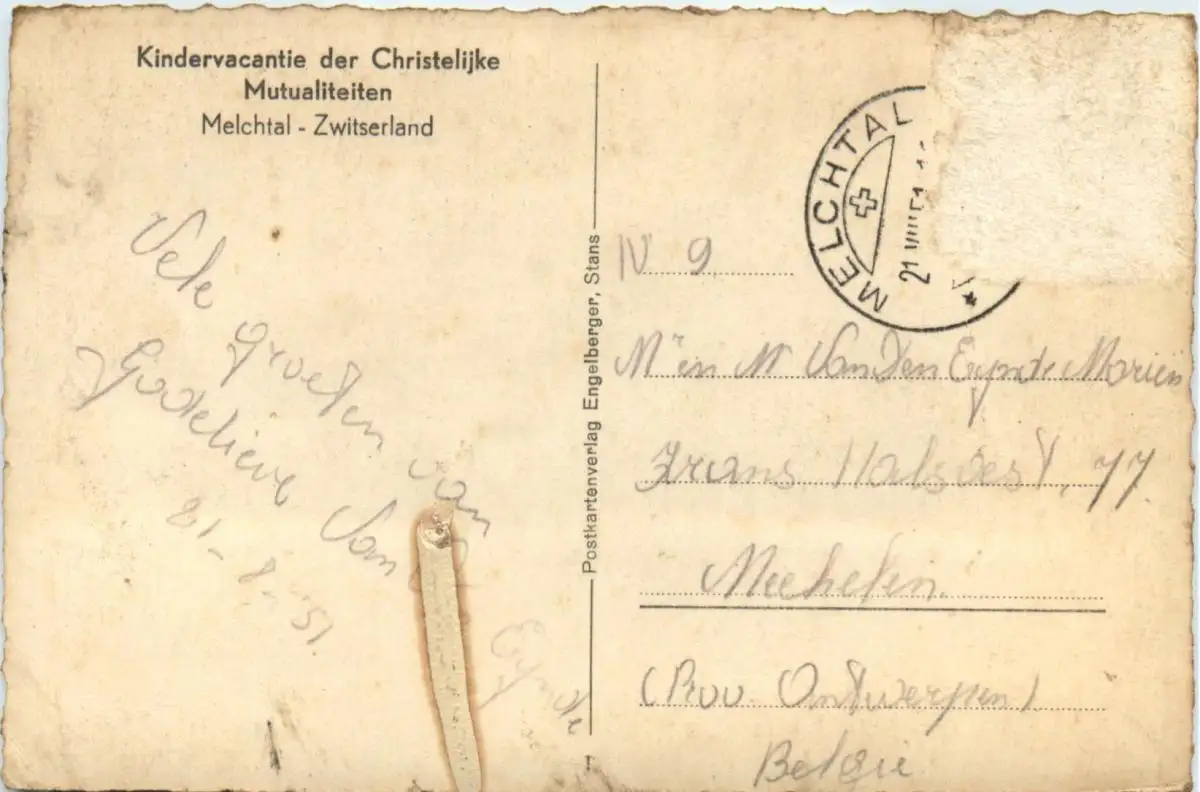 Kindervacantie der Christelijke
Mutualiteiten
Melchtal - Zwitserland
Vele groeten van
Godelieve Van
Eynde
21-8-'51
Postkartenverlag Engelberger, Stans
MELCHTAL
21 VIII 51
N 9
Mr en M Van Den Eynde Mariën
Frans Halsvest, 77.
Mechelen.
(Prov. Antwerpen)
België